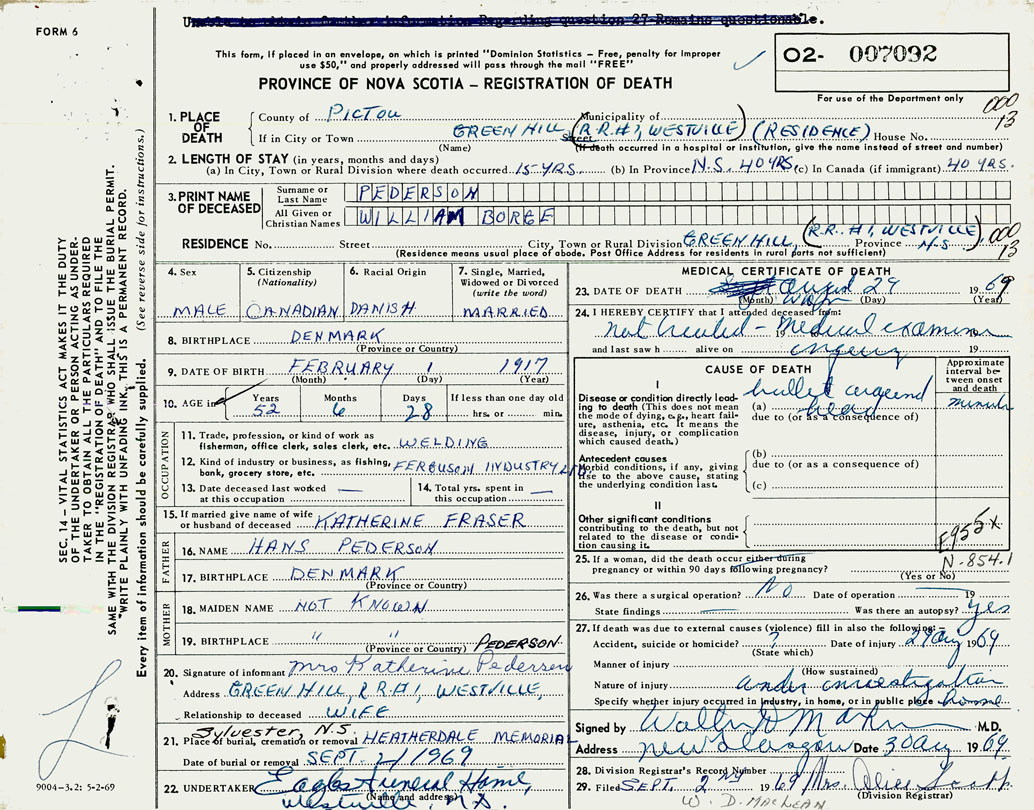 Unable to obtain further information Regarding question 27-Remains questionable.
FORM 6
This form, if placed in an envelope, on which is printed "Dominion Statistics - Free, penalty for improper
use $50," and properly addressed will pass through the mail "FREE"
02- 007092
PROVINCE OF NOVA SCOTIA - REGISTRATION OF DEATH
For use of the Department only
000
13
1. PLACE OF DEATH
County of PICTOU Municipality of
If in City or Town GREEN HILL Street (R.R.#1, WESTVILLE) (RESIDENCE) House No.
(Name) (If death occurred in a hospital or institution, give the name instead of street and number)
2. LENGTH OF STAY (in years, months and days)
(a) In City, Town or Rural Division where death occurred 15 YRS. (b) In Province N.S. 40 YRS. (c) In Canada (if immigrant) 40 YRS.
3. PRINT NAME OF DECEASED
Surname or Last Name PEDERSON
All Given or Christian Names WILLIAM BORGE
RESIDENCE No. Street City, Town or Rural Division GREEN HILL, (R.R.#1, WESTVILLE) Province N.S. 000 13
(Residence means usual place of abode. Post Office Address for residents in rural parts not sufficient)
4. Sex
MALE
5. Citizenship (Nationality)
CANADIAN
6. Racial Origin
DANISH
7. Single, Married, Widowed or Divorced (write the word)
MARRIED
8. BIRTHPLACE DENMARK
(Province or Country)
9. DATE OF BIRTH FEBRUARY 1 1917
(Month) (Day) (Year)
10. AGE in Years 52 Months 6 Days 28 If less than one day old hrs. or min.
OCCUPATION
11. Trade, profession, or kind of work as fisherman, office clerk, sales clerk, etc. WELDING
12. Kind of industry or business, as fishing, bank, grocery store, etc. FERGUSON INDUSTRY LTD.
13. Date deceased last worked at this occupation —
14. Total yrs. spent in this occupation —
15. If married give name of wife or husband of deceased KATHERINE FRASER
FATHER
16. NAME HANS PEDERSON
17. BIRTHPLACE DENMARK
(Province or Country)
MOTHER
18. MAIDEN NAME NOT KNOWN
19. BIRTHPLACE " "
(Province or Country) PEDERSON
20. Signature of informant Mrs Katherine Pedersen
Address GREEN HILL, R R #1, WESTVILLE,
Relationship to deceased WIFE
Sylvester, N.S.
21. Place of burial, cremation or removal HEATHERDALE MEMORIAL
Date of burial or removal SEPT. 1/1969
22. UNDERTAKER Eagles Funeral Home,
(Name and address) Westville, N.S.
MEDICAL CERTIFICATE OF DEATH
23. DATE OF DEATH August 29 1969
(Month) (Day) (Year)
24. I HEREBY CERTIFY that I attended deceased from:
not treated - Medical examiner 19
and last saw h alive on 19
CAUSE OF DEATH
Approximate interval between onset and death
I
Disease or condition directly leading to death (This does not mean the mode of dying, e.g., heart failure, asthenia, etc. It means the disease, injury, or complication which caused death.)
(a) bullet head
due to (or as a consequence of)
Antecedent causes
Morbid conditions, if any, giving rise to the above cause, stating the underlying condition last.
(b)
due to (or as a consequence of)
(c)
II
Other significant conditions
contributing to the death, but not related to the disease or condition causing it.
E955X
N-854.1
25. If a woman, did the death occur either during pregnancy or within 90 days following pregnancy?
(Yes or No)
26. Was there a surgical operation? No Date of operation 19
State findings Was there an autopsy? yes
27. If death was due to external causes (violence) fill in also the following:
Accident, suicide or homicide? ? Date of injury 29 Aug 1969
(State which)
Manner of injury
(How sustained)
Nature of injury under investigation
Specify whether injury occurred in industry, in home, or in public place home
Signed by M.D.
Address New Glasgow Date 30 Aug 1969
28. Division Registrar's Record Number
29. Filed SEPT. 2 1969 Mrs.
(Division Registrar)
W. D. MACLEAN
SEC. 14 - VITAL STATISTICS ACT MAKES IT THE DUTY
OF THE UNDERTAKER OR PERSON ACTING AS UNDERTAKER TO OBTAIN ALL THE PARTICULARS REQUIRED
IN THE "REGISTRATION OF DEATH" AND TO FILE THE
SAME WITH THE DIVISION REGISTRAR WHO SHALL ISSUE THE BURIAL PERMIT.
"WRITE PLAINLY WITH UNFADING INK, THIS IS A PERMANENT RECORD.
Every item of information should be carefully supplied. (See reverse side for instructions.)
9004-3.2: 5-2-69